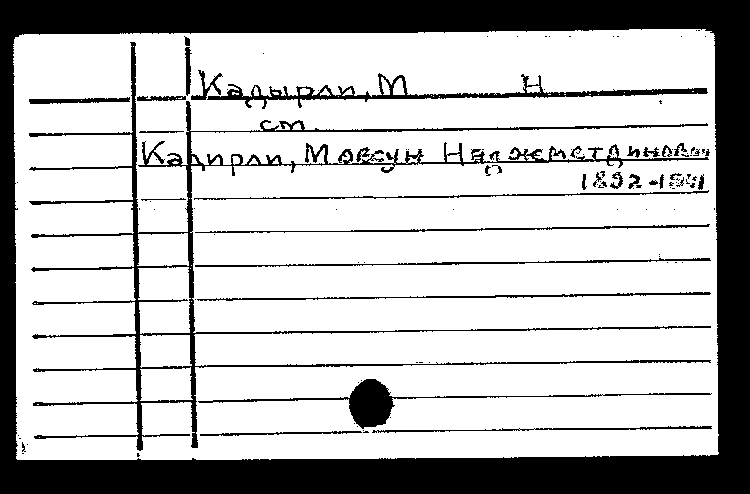 Кадырли, М Н
ст.
Кадирли, Мовсун Наджметдинович
1892-1941